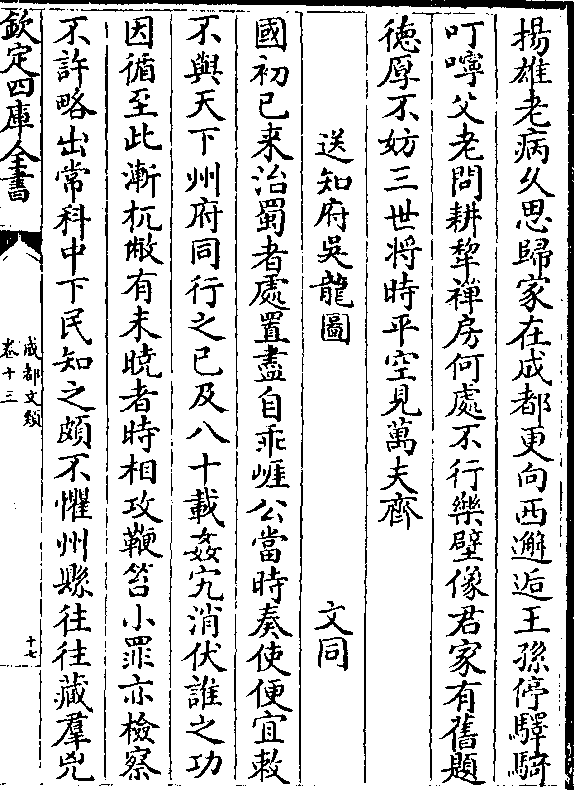 揚雄老病久思歸家在成都更向西邂逅王孫停驛騎
叮嚀父老問耕犂禪房何處不行樂壁像君家有舊題
徳厚不妨三世将時平空見萬夫齊
送知府吳龍圖
文同
國初已来治蜀者處置盡自乖崕公當時奏使便宜敕
不與天下州府同行之已及八十載姦宄消伏誰之功
因循至此漸杌敝有未曉者時相攻鞭笞小罪亦檢察
不許略出常科中下民知之頗不懼州縣往往藏羣兇
欽定四庫全書
成都文類
卷十三
十七